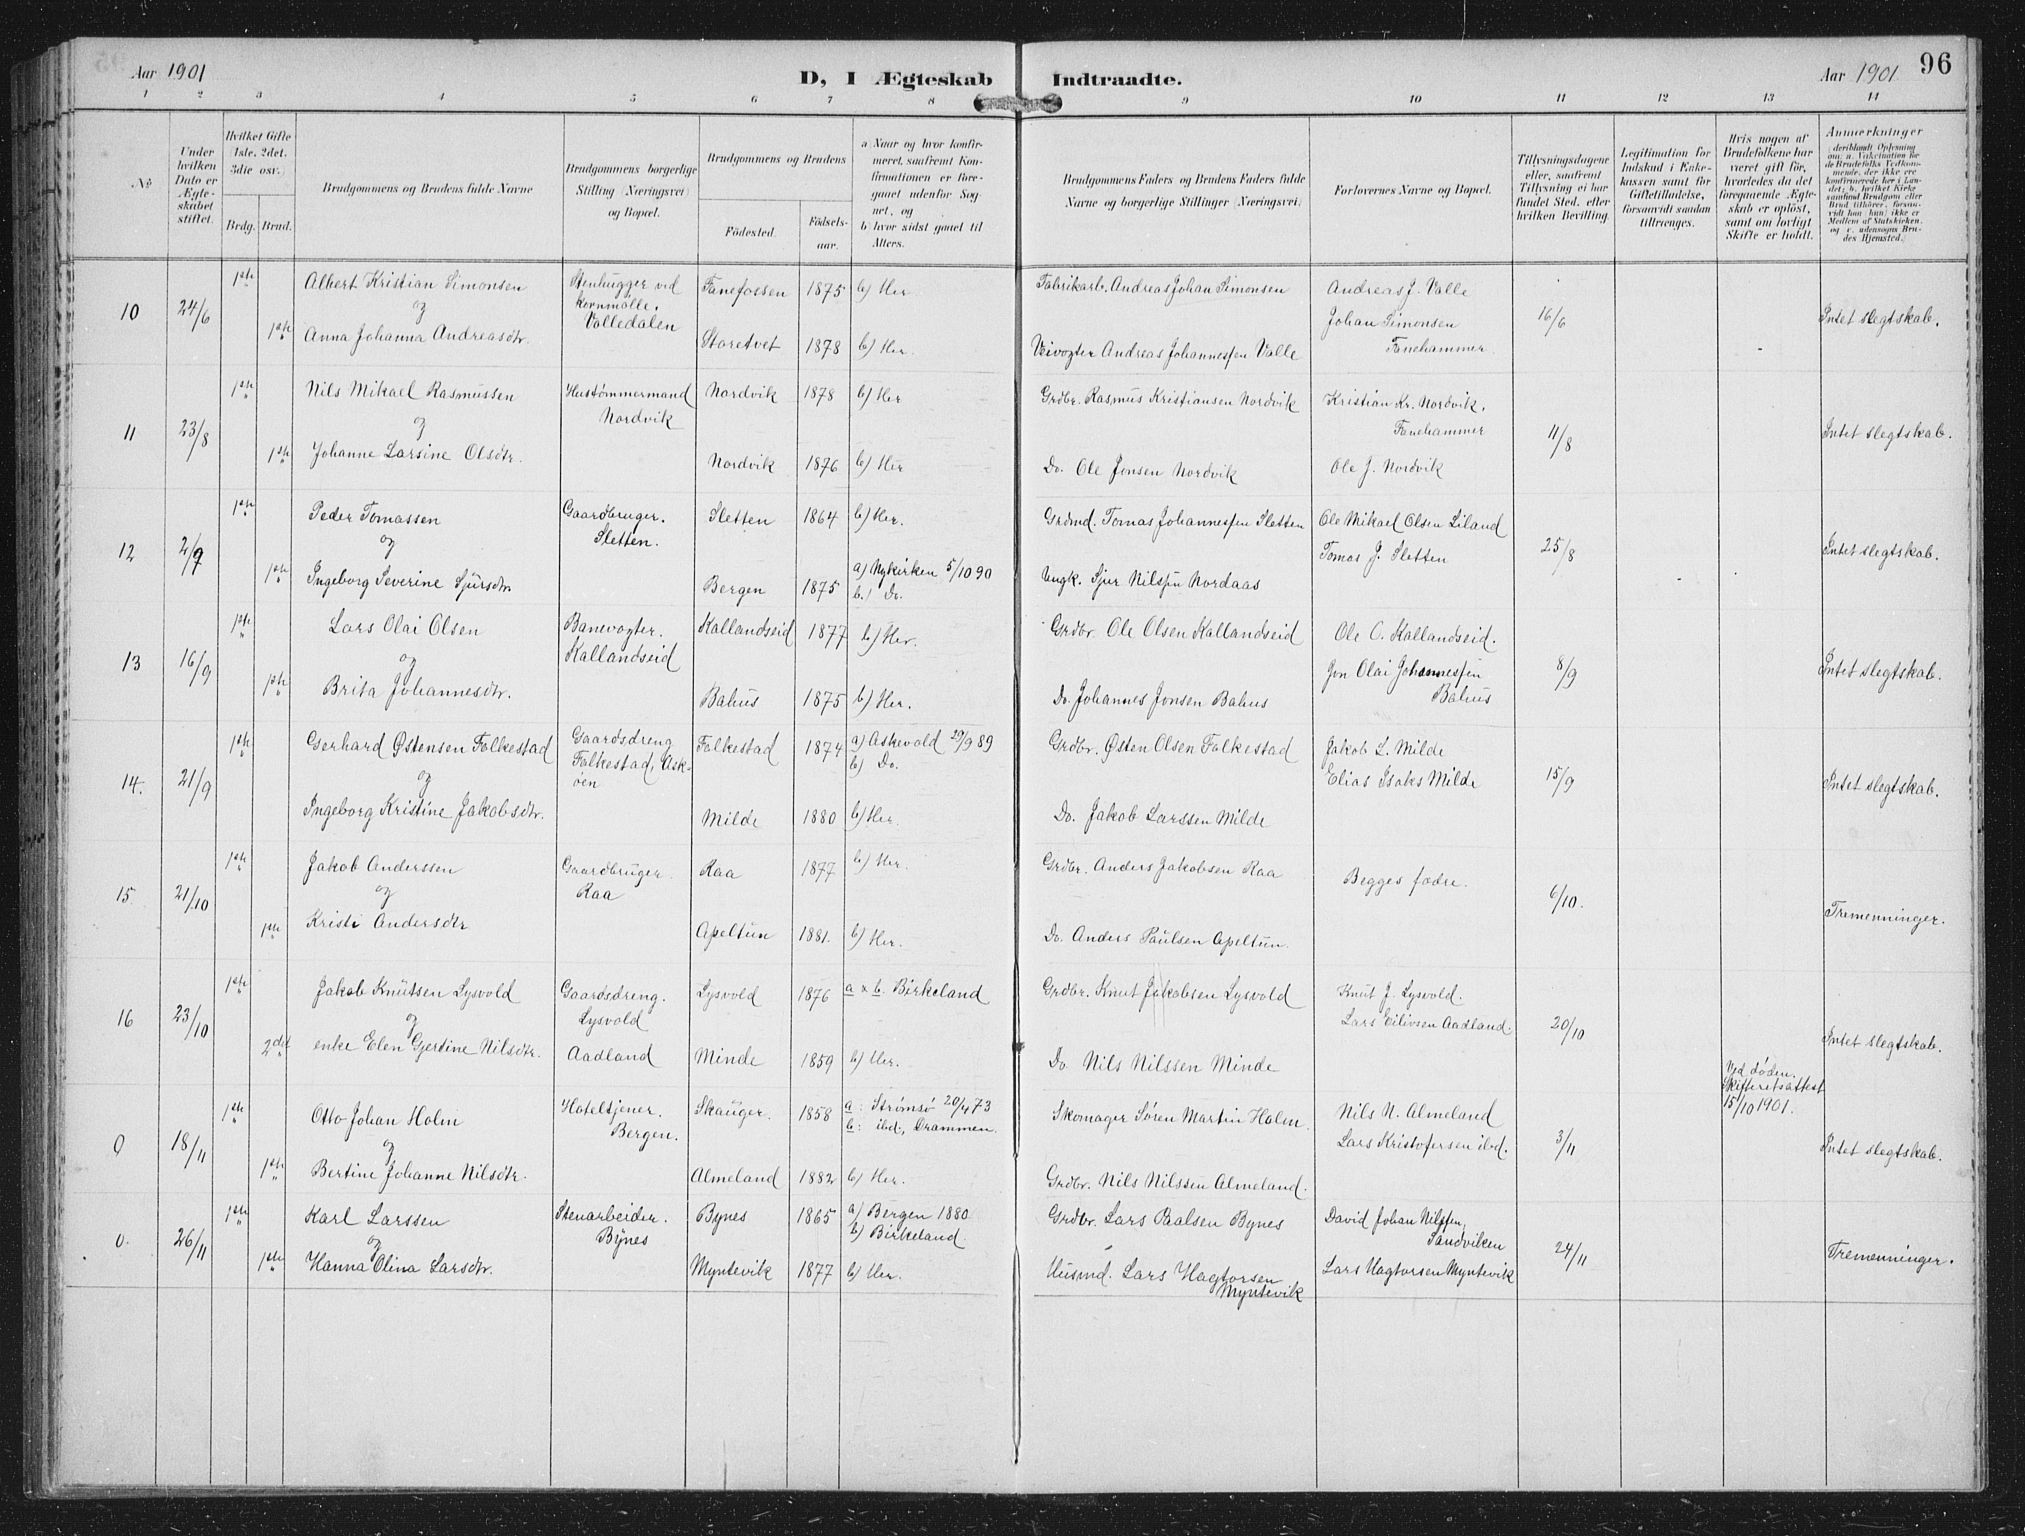 Aar 1901
D, I Ægteskab
Indtraadte.
Aar 1901
96
1 2 3 4 5 6 7 8 9 10 11 12 13 14
No
Under hvilken Dato er Ægteskabet stiftet.
Hvilket Gifte (1ste, 2det, 3die osv.)
Brdg. Brud.
Brudgommens og Brudens fulde Navne
Brudgommens borgerlige Stilling (Næringsvei) og Bopæl.
Brudgommens og Brudens
Födested.
Födselsaar.
a Naar og hvor konfirmeret, saafremt Konfirmationen er foregaaet udenfor Sognet, og
b) hvor sidst gaaet til Alters.
Brudgommens Faders og Brudens Faders fulde Navne og borgerlige Stillinger (Næringsvei)
Forlovernes Navne og Bopæl.
Tillysningsdagene eller, saafremt Tillysning ei har fundet Sted, efter hvilken Bevilling.
Legitimation for Indskud i Enkekassen samt for Giftetilladelse, forsaavidt saadan tiltrænges.
Hvis nogen af Brudefolkene har været gift för, hvorledes da det foregaaende Ægteskab er oplöst, samt om lovligt Skifte er holdt.
Anmerkninger
(deriblandt Oplysning om: a. Vakcination for de Brudefolks Vedkommende, der ikke ere konfirmerede her i Landet; b. hvilket Kirkesamfund Brudgom eller Brud tilhører, forsaavidt han (hun) ikke er Medlem af Statskirken, og c. udensogns Brudes Hjemsted.)
10 24/6 1ste Albert Kristian Simonsen Stenhugger ved Fanefossen 1875 b) Her Fabrikarb. Andreas Johan Simonsen Andreas J. Valle
og Kornmølle. Johan Simonsen 16/6 Intet slegtskab.
Valledalen
1ste Anna Johanna Andreasdtr. Storetvet 1878 b) Her. Veivogter Andreas Johannessen Valle Fanehammer.
11 23/8 1ste Nils Mikael Rasmussen Hustømmermand Nordvik 1878 b) Her Grdbr. Rasmus Kristiansen Nordvik Kristian Kr. Nordvik.
og Nordvik Fanehammer 11/8 Intet slegtskab.
1ste Johanne Larsine Olsdtr. Nordvik 1876 b) Her Do. Ole Jonsen Nordvik Ole J. Nordvik
12 2/9 1ste Peder Tomassen Gaardbruger. Sletten 1864 b) Her. Grdmd. Tomas Johannessen Sletten Ole Mikael Olsen Liland
og Sletten. Tomas J. Sletten 25/8 Intet slegtskab.
1ste Ingeborg Severine Sjursdtr. Bergen 1875 a) Nykirken 5/10 90 Ungk. Sjur Nilssen Nordaas
b.) Do.
13 16/9 1ste Lars Olai Olsen Banevogter. Kallandseid 1877 b) Her. Grdbr. Ole Olsen Kallandseid Ole O. Kallandseid.
og Kallandseid Jon Olai Johannessen 8/9 Intet slegtskab.
1ste Brita Johannesdtr. Bahus 1875 b) Her. Do. Johannes Jonsen Bahus Bahus
14. 21/9 1ste Gerhard Østensen Folkestad Gaardsdreng Folkestad 1874 a) Askevold 29/9 89 Grdbr. Østen Olsen Folkestad Jakob L. Milde
og Folkestad, Askøen b) Do. Elias Isaks Milde 15/9 Intet slegtskab.
1ste Ingeborg Kristine Jakobsdtr. Milde 1880 b) Her. Do. Jakob Larssen Milde
15 21/10 1ste Jakob Anderssen Gaardbruger. Raa 1877 b) Her. Grdbr. Anders Jakobsen Raa Begges fædre.
og Raa 6/10. Tremenninger.
1ste Kristi Andersdtr Apeltun 1881. b) Her. Do. Anders Paulsen Apeltun.
16 23/10 1ste Jakob Knutsen Lysvold Gaardsdreng. Lysvold 1876 a & b. Birkeland Grdbr. Knut Jakobsen Lysvold Knut J. Lysvold.
og Lysvold Lars Eilivsen Aadland. 20/10 Intet slegtskab.
2det enke Elen Gjertine Nilsdtr. Aadland Minde 1859 b) Her. Do. Nils Nilssen Minde
Ved døden.
Skifteretsattest
15/10 1901.
0 18/11 1ste Otto Johan Holm Hoteltjener. Skauger. 1858 a: Strømsø 20/4 73 Skomager Søren Martin Holm. Nils N. Almeland
og Bergen. b: ibd., Drammen. Lars Kristofersen ibd. 3/11 Intet slegtskab.
1ste Bertine Johanne Nilsdtr. Almeland 1882 b) Her. Grdbr. Nils Nilssen Almeland.
0. 26/11 1ste Karl Larssen Stenarbeider. Bynes 1865 a) Bergen 1880 Grdbr. Lars Paalsen Bynes David Johan Nilssen,
og Bynes b) Birkeland. Sandviken 24/11 Tremenninger.
1ste Hanna Olina Larsdtr. Myntevik 1877 b) Her. Husmd. Lars Hagtorsen Lars Hagtorsen Myntevik
Myntevik